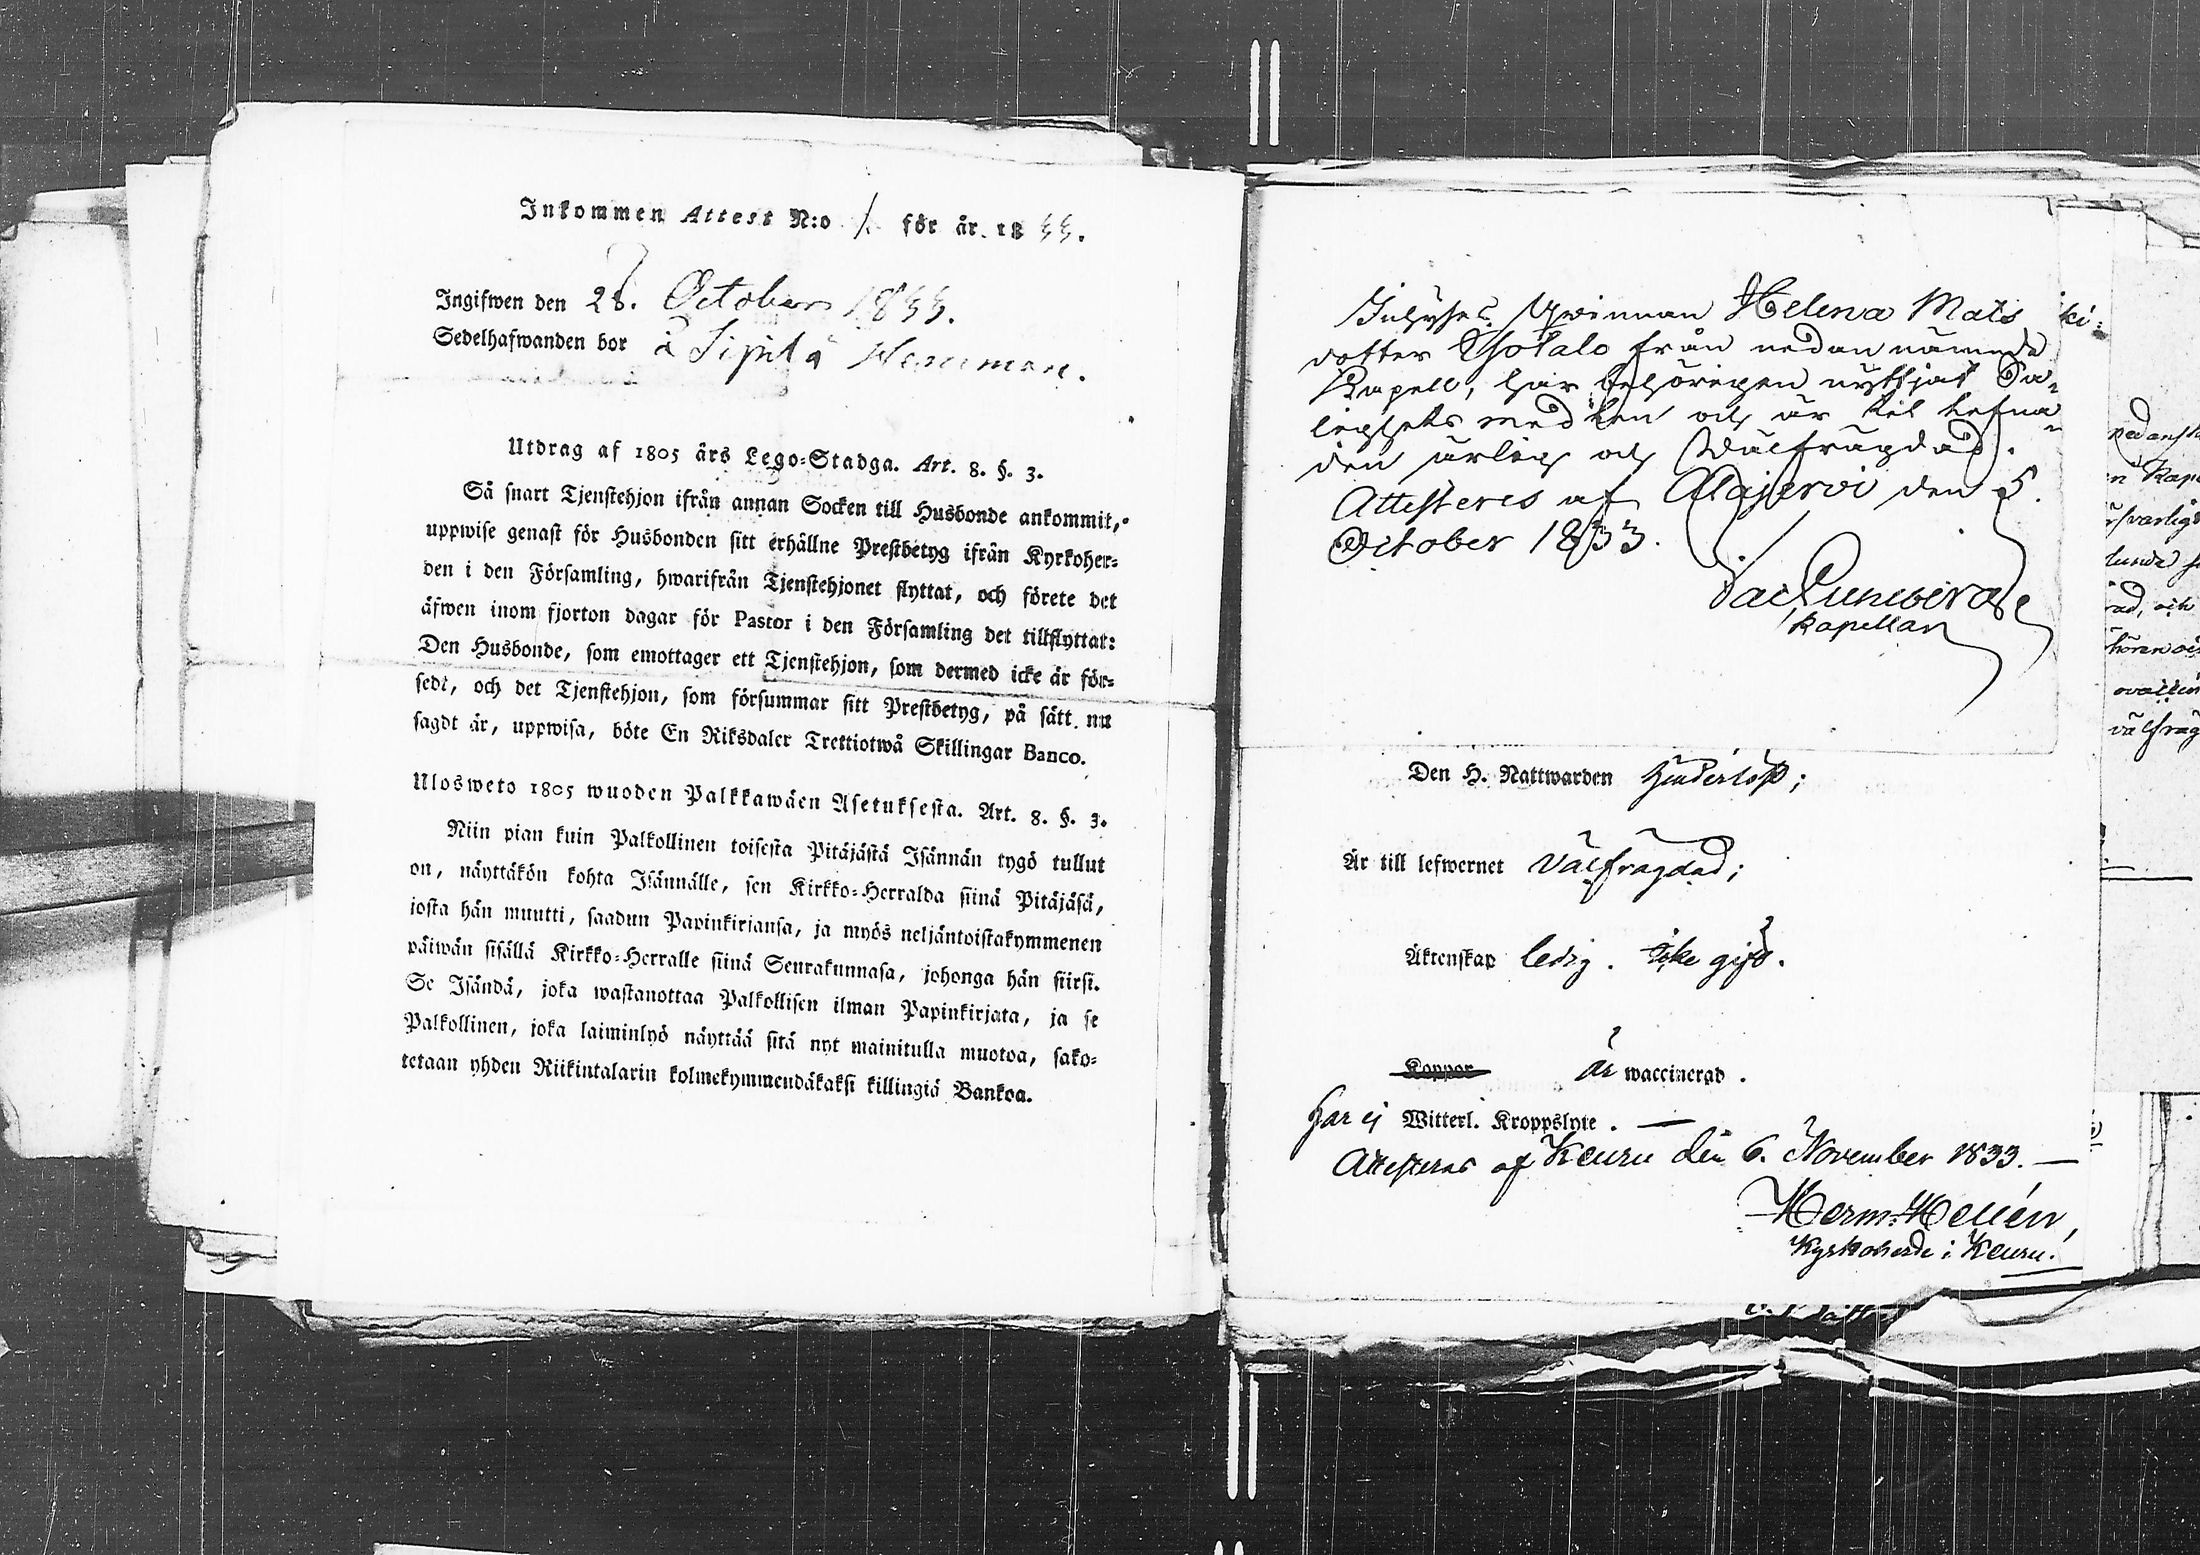 Inkommen Attest N:o 1. för år 1833.
Ingifwen den 28. October 1833.
Sedelhafwanden bor å Sipilä
Utdrag af 1805 års Lego-Stadga. Art. 8. §. 3.
Så snart Tjenstehjon ifrån annan Socken till Husbonde ankommit,
uppwise genast för Husbonden sitt erhållne Prestbetyg ifrån Kyrkoher-
den i den Församling, hwarifrån Tjenstehjonet flyttat, och förete det
äfwen inom fjorton dagar för Pastor i den Församling det tillflyttat:
Den Husbonde, som emottager ett Tjenstehjon, som dermed icke är för-
sedt, och det Tjenstehjon, som försummar sitt Prestbetyg, på sätt nu
sagdt är, uppwisa, böte En Riksdaler Trettiotwå Skillingar Banco.
Ulosweto 1805 wuoden Palkkawäen Asetuksesta. Art. 8. §. 3.
Niin pian kuin Palkollinen toisesta Pitäjästä Isännän tygö tullut
on, näyttäkön kohta Isännälle, sen Kirkko-Herralda siinä Pitäjäsä,
josta hän muutti, saadun Papinkirjansa, ja myös neljäntoistakymmenen
päiwän sisällä Kirkko-Herralle siinä Seurakunnasa, johonga hän siirsi.
Se Isändä, joka wastanottaa Palkollisen ilman Papinkirjata, ja se
Palkollinen, joka laiminlyö näyttää sitä nyt mainitulla muotoa, sako-
tetaan yhden Riikintalarin kolmekymmendäkaksi killingiä Bankoa.
Qwinnan Helena Mats
dotter från nedannämnde
Kapell, har behörigen nyttjat Sa-
lighets medlen och är til lefna-
den ärlig och Wälfrägdad.
Attesteres af Alajervi den 5.
October 1833.
Kapellan
Den H. Nattwarden hinderlöst;
Är till lefwernet välfrägdad;
Äktenskap ledig. icke gift.
Koppor är waccinerad.
har ej Witterl. Kroppslyte. —
Attesteras af Keuru den 6. November 1833. —
Herm. Hellén,
Kyrkoherde i Keuru.